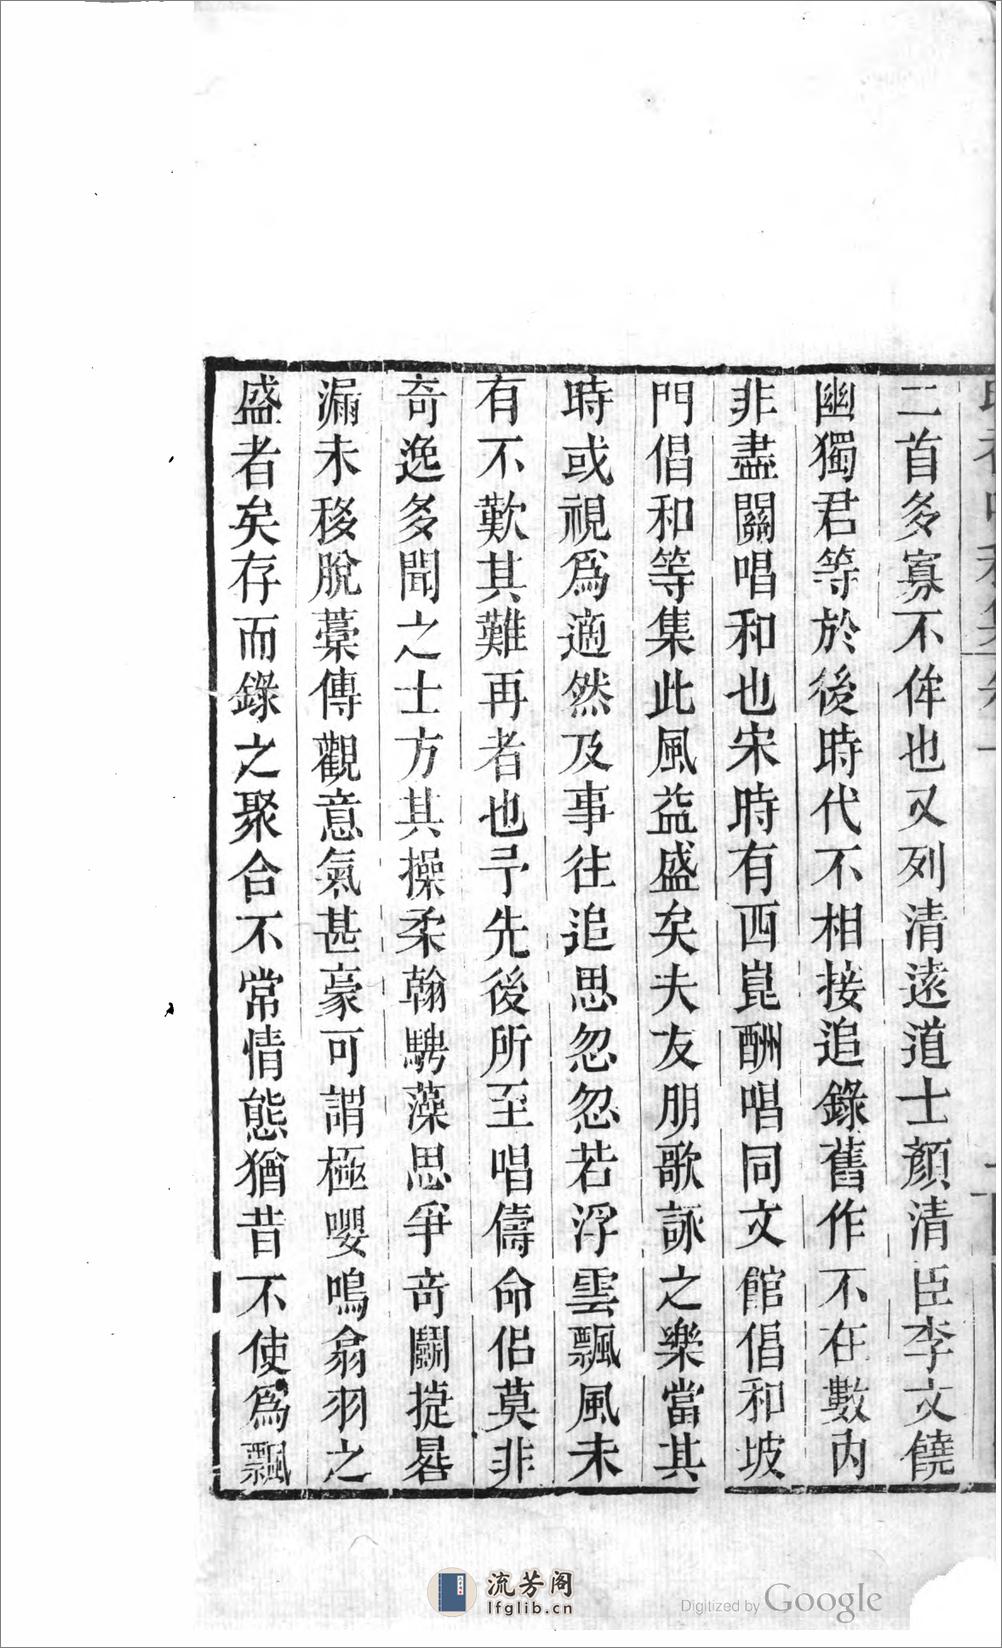 二首多寡不侔也又列清遠道士顏清臣李文饒
幽獨君等於後時代不相接追錄舊作不在數內
非盡關唱和也宋時有西崑酬唱同文館倡和坡
門倡和等集此風益盛矣夫友朋歌詠之樂當其
時或視爲適然及事往追思忽忽若浮雲飄風未
有不歎其難再者也予先後所至唱儔命侶莫非
奇逸多聞之士方其操柔翰騁藻思爭奇鬭捷晷
漏未移脫藁傳觀意氣甚豪可謂極嚶鳴翕羽之
盛者矣存而錄之聚合不常情態猶昔不使爲飄
流芳阁
lfglib.cn
Digitized by Google